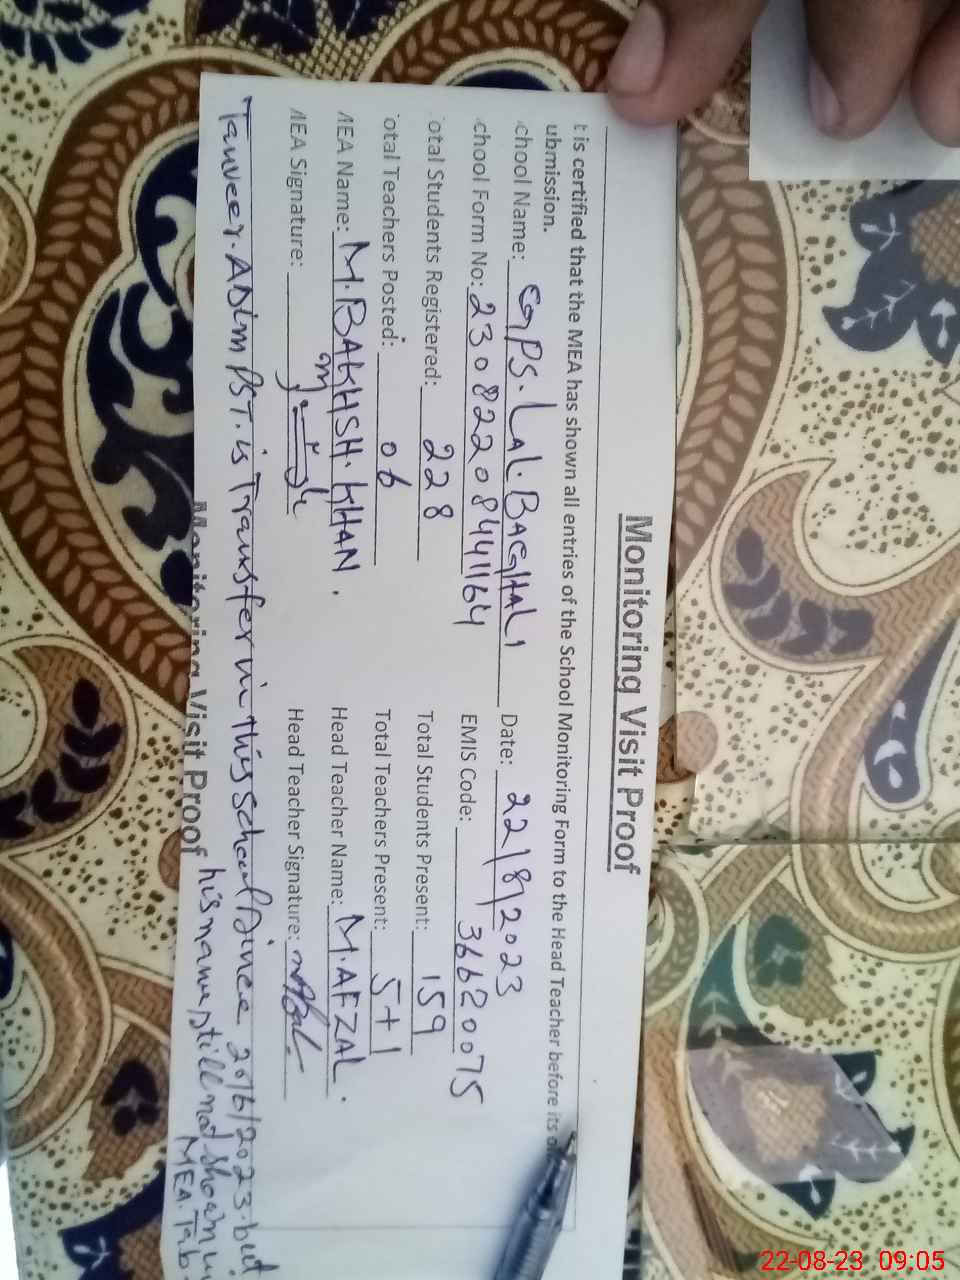 Monitoring Visit Proof
t is certified that the MEA has shown all entries of the School Monitoring Form to the Head Teacher before its o
ubmission.
chool Name: GPS. LAL. BAGHALI Date: 22/8/2023
chool Form No: 230822208441164 EMIS Code: 36620075
otal Students Registered: 228 Total Students Present: 159
otal Teachers Posted: 06 Total Teachers Present: 5+1
MEA Name: M. BAKHSH. KHAN. Head Teacher Name: M. AFZAL.
MEA Signature: Head Teacher Signature:
Tanveer. PST. is Transfer in this school since 20/6/2023. but
his name still not shown
MEA. Tab.
Monitoring Visit Proof
22-08-23 09:05